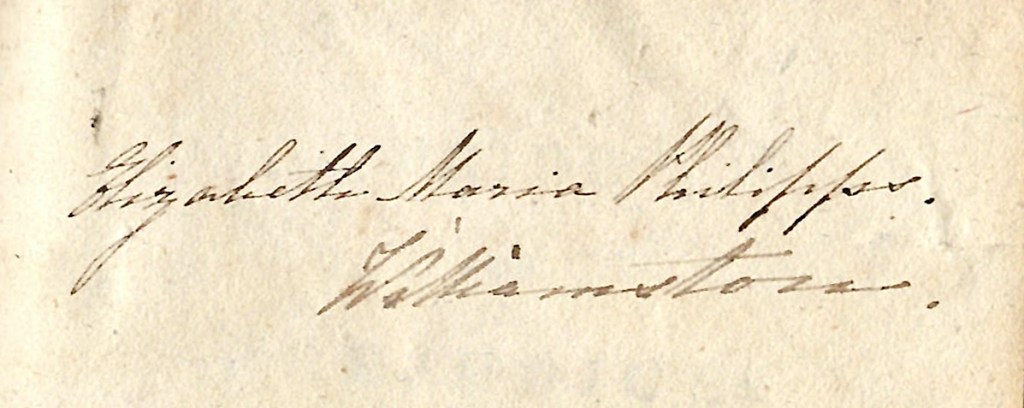 Elizabeth Maria Philipps.
Williamston.